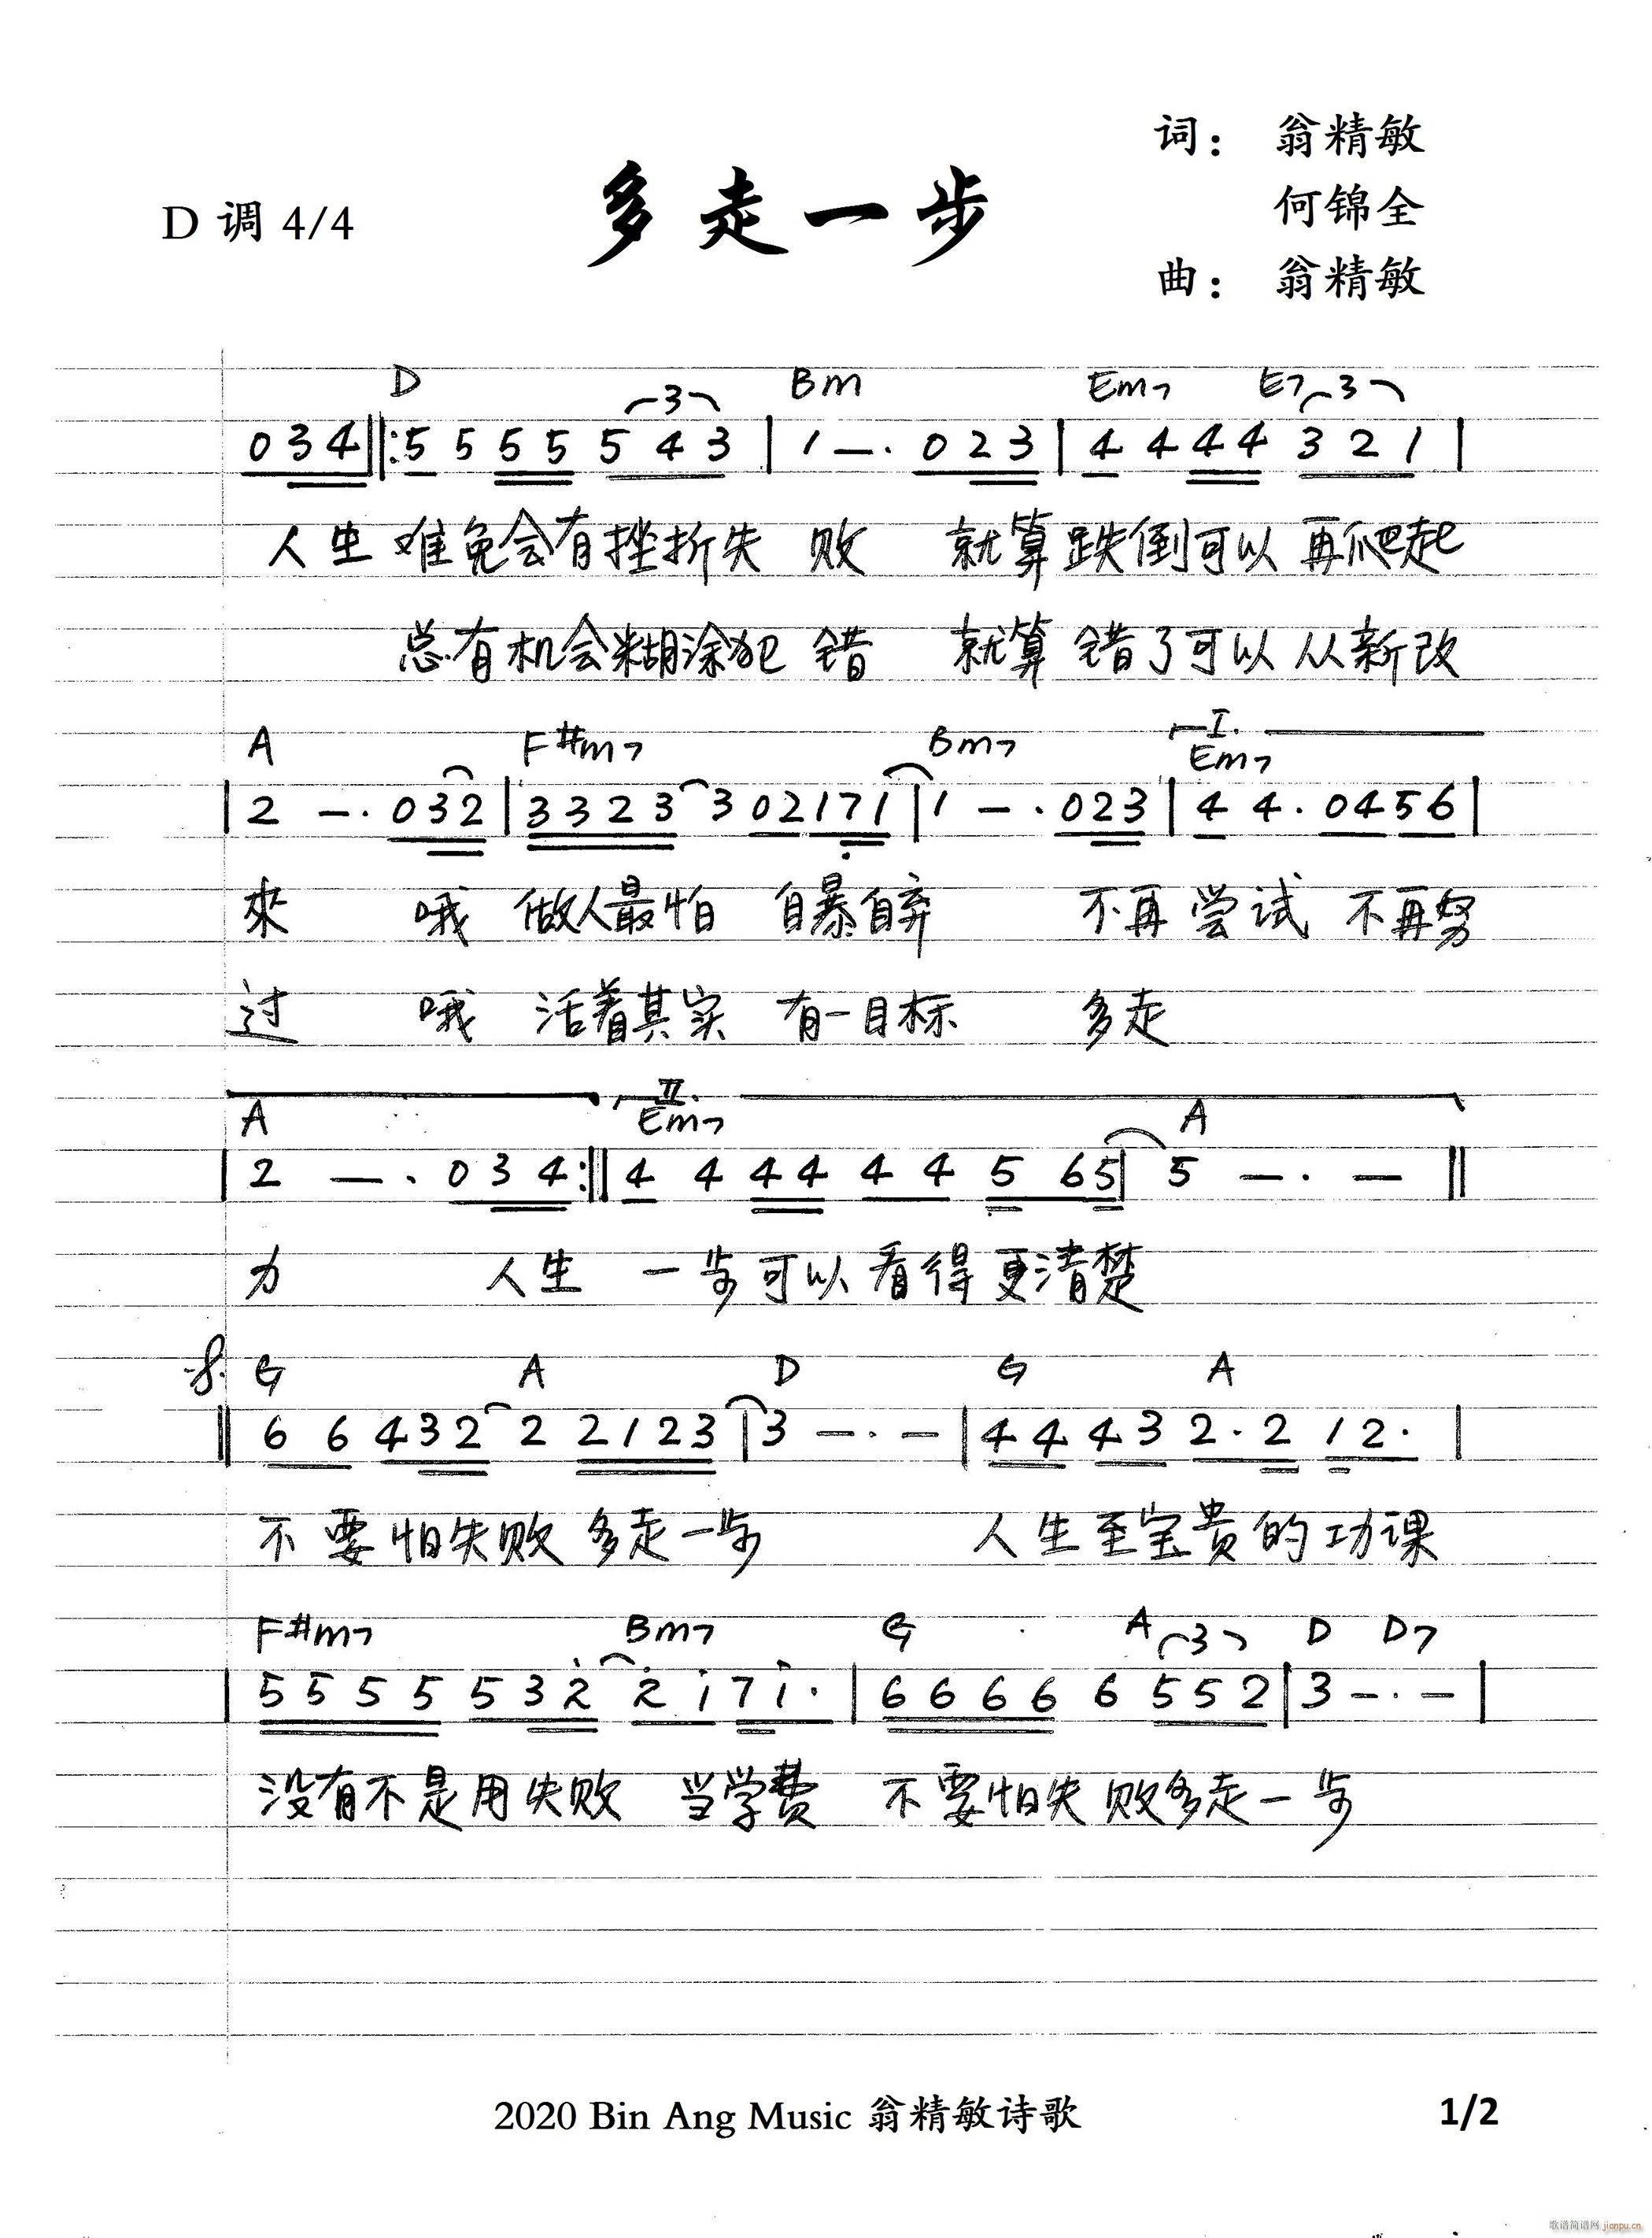 词： 翁精敏
D 调 4/4 多走一步 何锦全
曲： 翁精敏
D 3 Bm Em7 E7 3
0 3 4 ‖: 5 5 5 5 5 4 3 | 1 — · 0 2 3 | 4 4 4 4 3 2 1 |
人生 难免会有挫折失 败 就算跌倒可以 再爬起
总有机会糊涂犯 错 就算 错了可以 从新改
A F#m7 Bm7 I. Em7
| 2 — · 0 3 2 | 3 3 2 3 3 0 2 1 7 1 | 1 — · 0 2 3 | 4 4 · 0 4 5 6 |
來 哦 做人最怕 自暴自弃 不再 尝试 不再努
过 哦 活着其实 有一目标 多走
A II. Em7 A
| 2 — · 0 3 4 :‖ 4 4 4 4 4 4 5 6 5 | 5 — · — ‖
力 人生 一步可以看得更清楚
G A D G A
‖ 6 6 4 3 2 2 2 1 2 3 | 3 — · — | 4 4 4 3 2 · 2 1 2 · |
不要怕失败 多走一步 人生至宝贵的功课
F#m7 Bm7 G A 3 D D7
| 5 5 5 5 5 3 2 2 1 7 1 · | 6 6 6 6 6 5 5 2 | 3 — · — |
没有不是用失败 当学费 不要怕失 败多走一步
2020 Bin Ang Music 翁精敏诗歌 1/2
歌谱简谱网 jianpu.cn